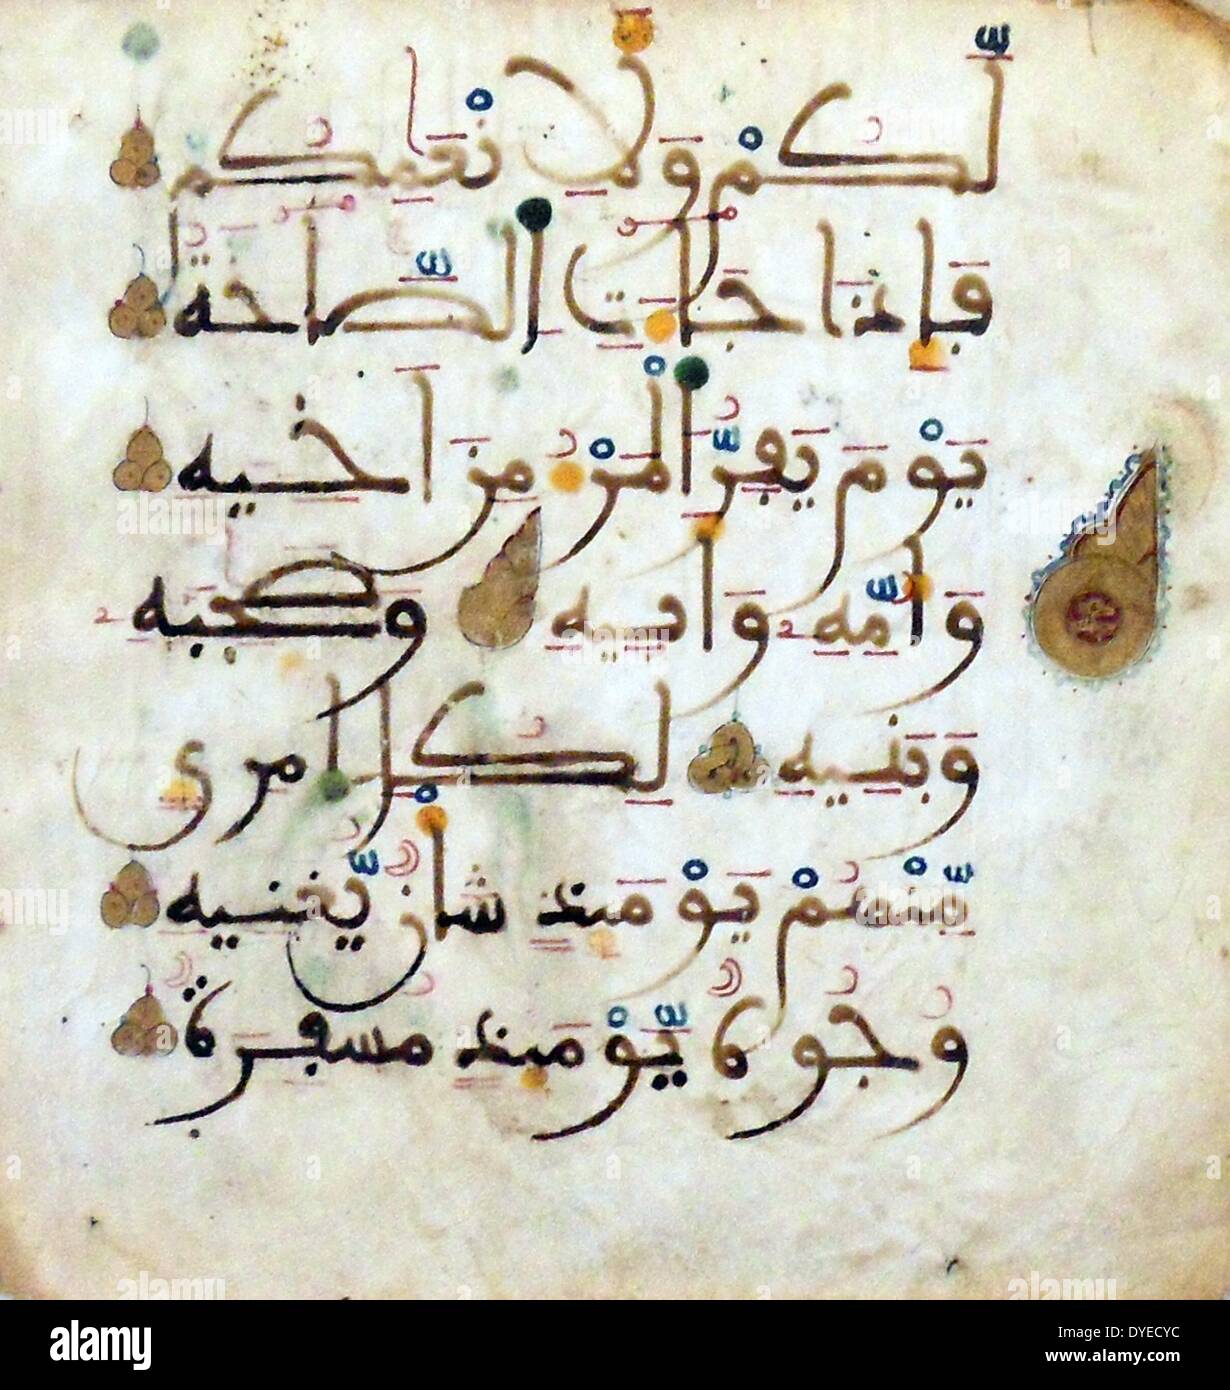 لَّكُمْ وَلِأَنْعَٰمِكُمْ
فَإِذَا جَآءَتِ ٱلصَّآخَّةُ
يَوْمَ يَفِرُّ ٱلْمَرْءُ مِنَ أَخِيهِ
وَأُمِّهِۦ وَأَبِيهِ وَصَٰحِبَتِهِۦ
وَبَنِيهِ لِكُلِّ ٱمْرِئٍ
مِّنْهُمْ يَوْمَئِذٍ شَأْنٌ يُغْنِيهِ
وُجُوهٌ يَوْمَئِذٍ مُّسْفِرَةٌ
alamy
DYECYC
www.alamy.com